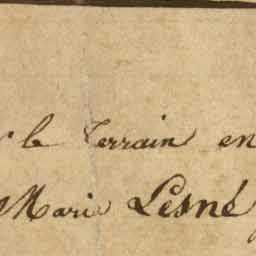 le terrain en
Marie Lesné